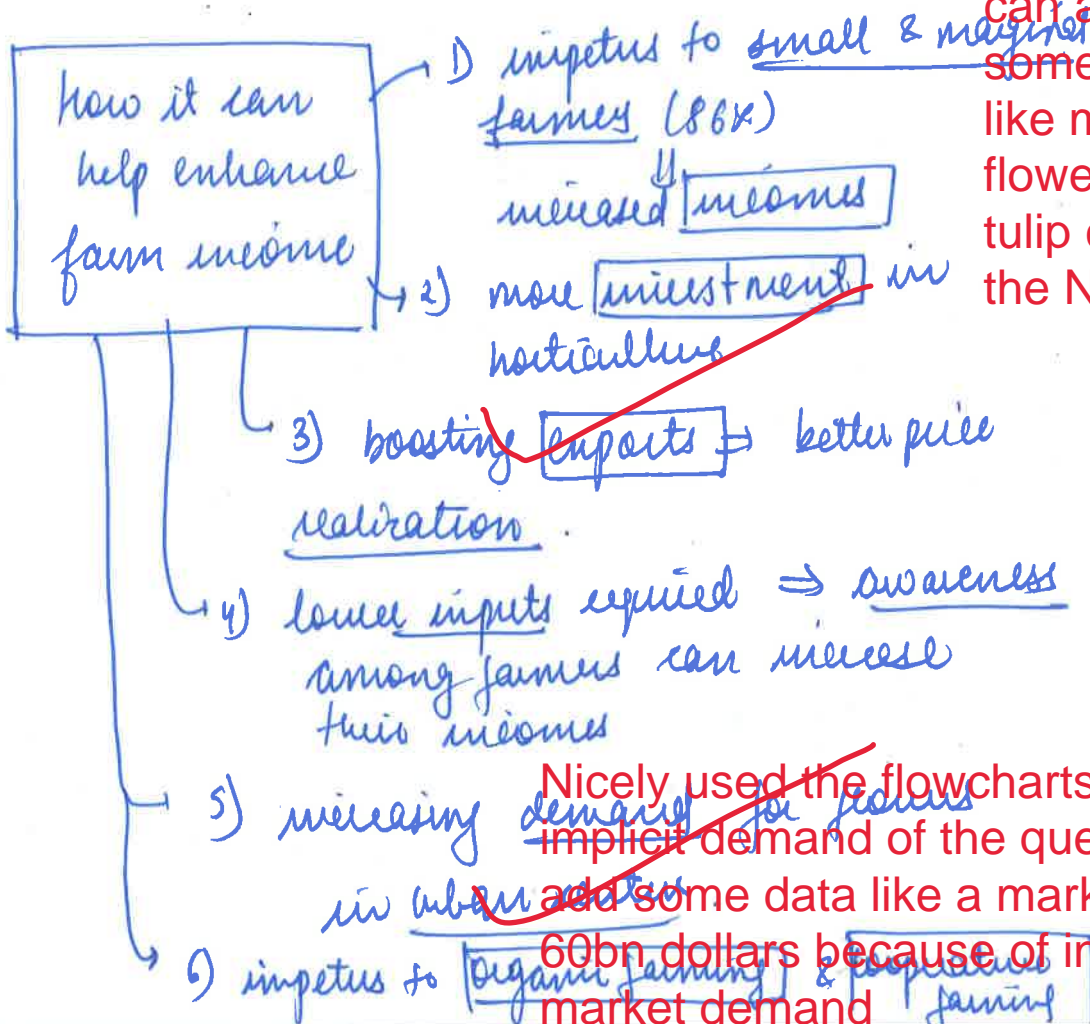 how it can
help enhance
farm income
1) impetus to small & marginal
farmers (86%)
⇓
increased incomes
2) more investment in
horticulture
3) boosting exports ⇒ better price
realization.
4) lower inputs required ⇒ awareness
among farmers can increase
their incomes
5) increasing demand for
in urban
6) impetus to organic farming &
farming
can a
some
like m
flowe
tulip
the N
Nicely used the flowcharts
implicit demand of the que
add some data like a mark
60bn dollars because of in
market demand